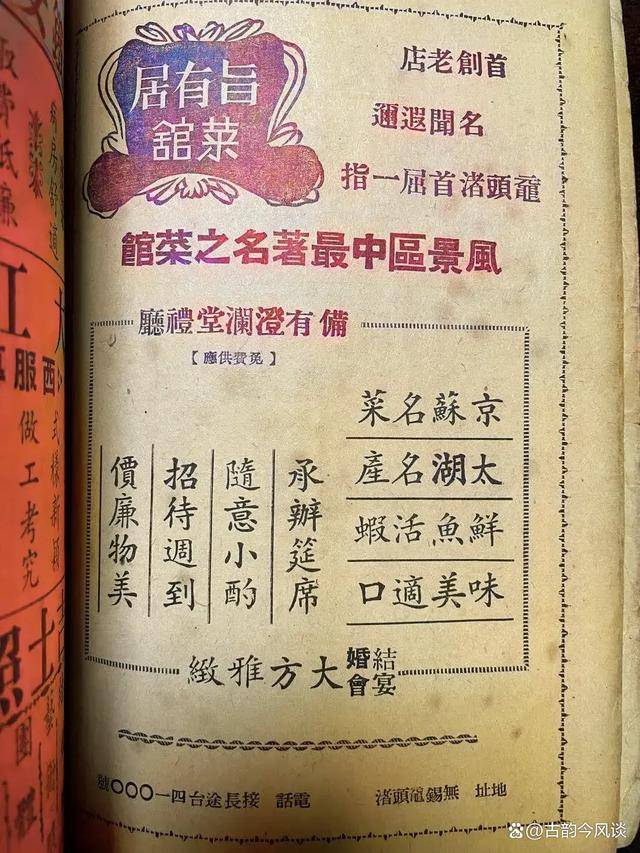 首創老店
名聞遐邇
黿頭渚首屈一指
旨有居
菜館
風景區中最著名之菜館
備有澄瀾堂禮廳
【免費供應】
京蘇名菜
太湖名產
鮮魚活蝦
味美適口
承辦筵席
隨意小酌
招待週到
價廉物美
結婚宴會大方雅緻
地址 無錫黿頭渚 電話 接長途台四一〇〇〇號
取費低廉
西服
式樣新穎
做工考究
照
@古韵今风谈